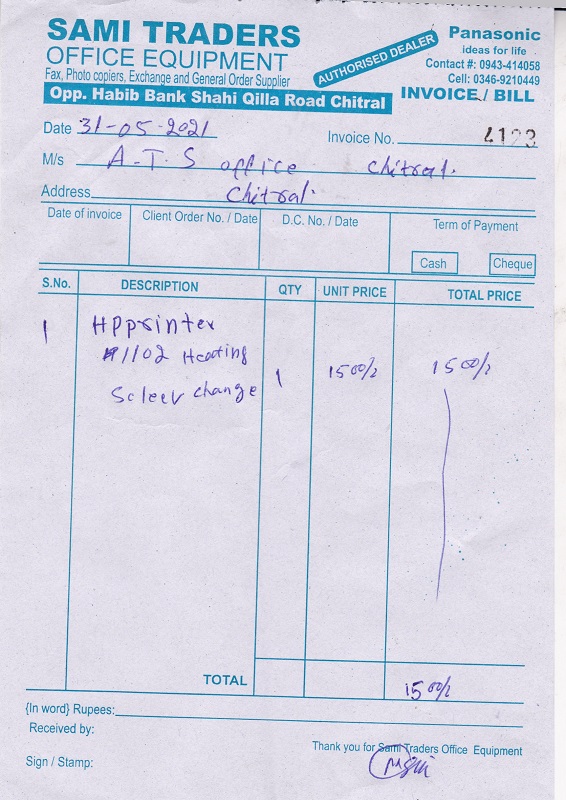 SAMI TRADERS
OFFICE EQUIPMENT
Fax, Photo copiers, Exchange and General Order Supplier
Opp. Habib Bank Shahi Qilla Road Chitral
AUTHORISED DEALER
Panasonic
ideas for life
Contact #: 0943-414058
Cell: 0346-9210449
INVOICE / BILL
Date 31-05-2021
Invoice No. 4123
M/s A.T.S office Chitral.
Address Chitral.
Date of invoice Client Order No. / Date D.C. No. / Date Term of Payment
Cash Cheque
S.No. DESCRIPTION QTY UNIT PRICE TOTAL PRICE
1 HP printer
1102 Heating 1500/2 1500/2
Scleev change 1
TOTAL 1500/2
{In word} Rupees:
Received by:
Thank you for Sami Traders Office Equipment
Sign / Stamp: